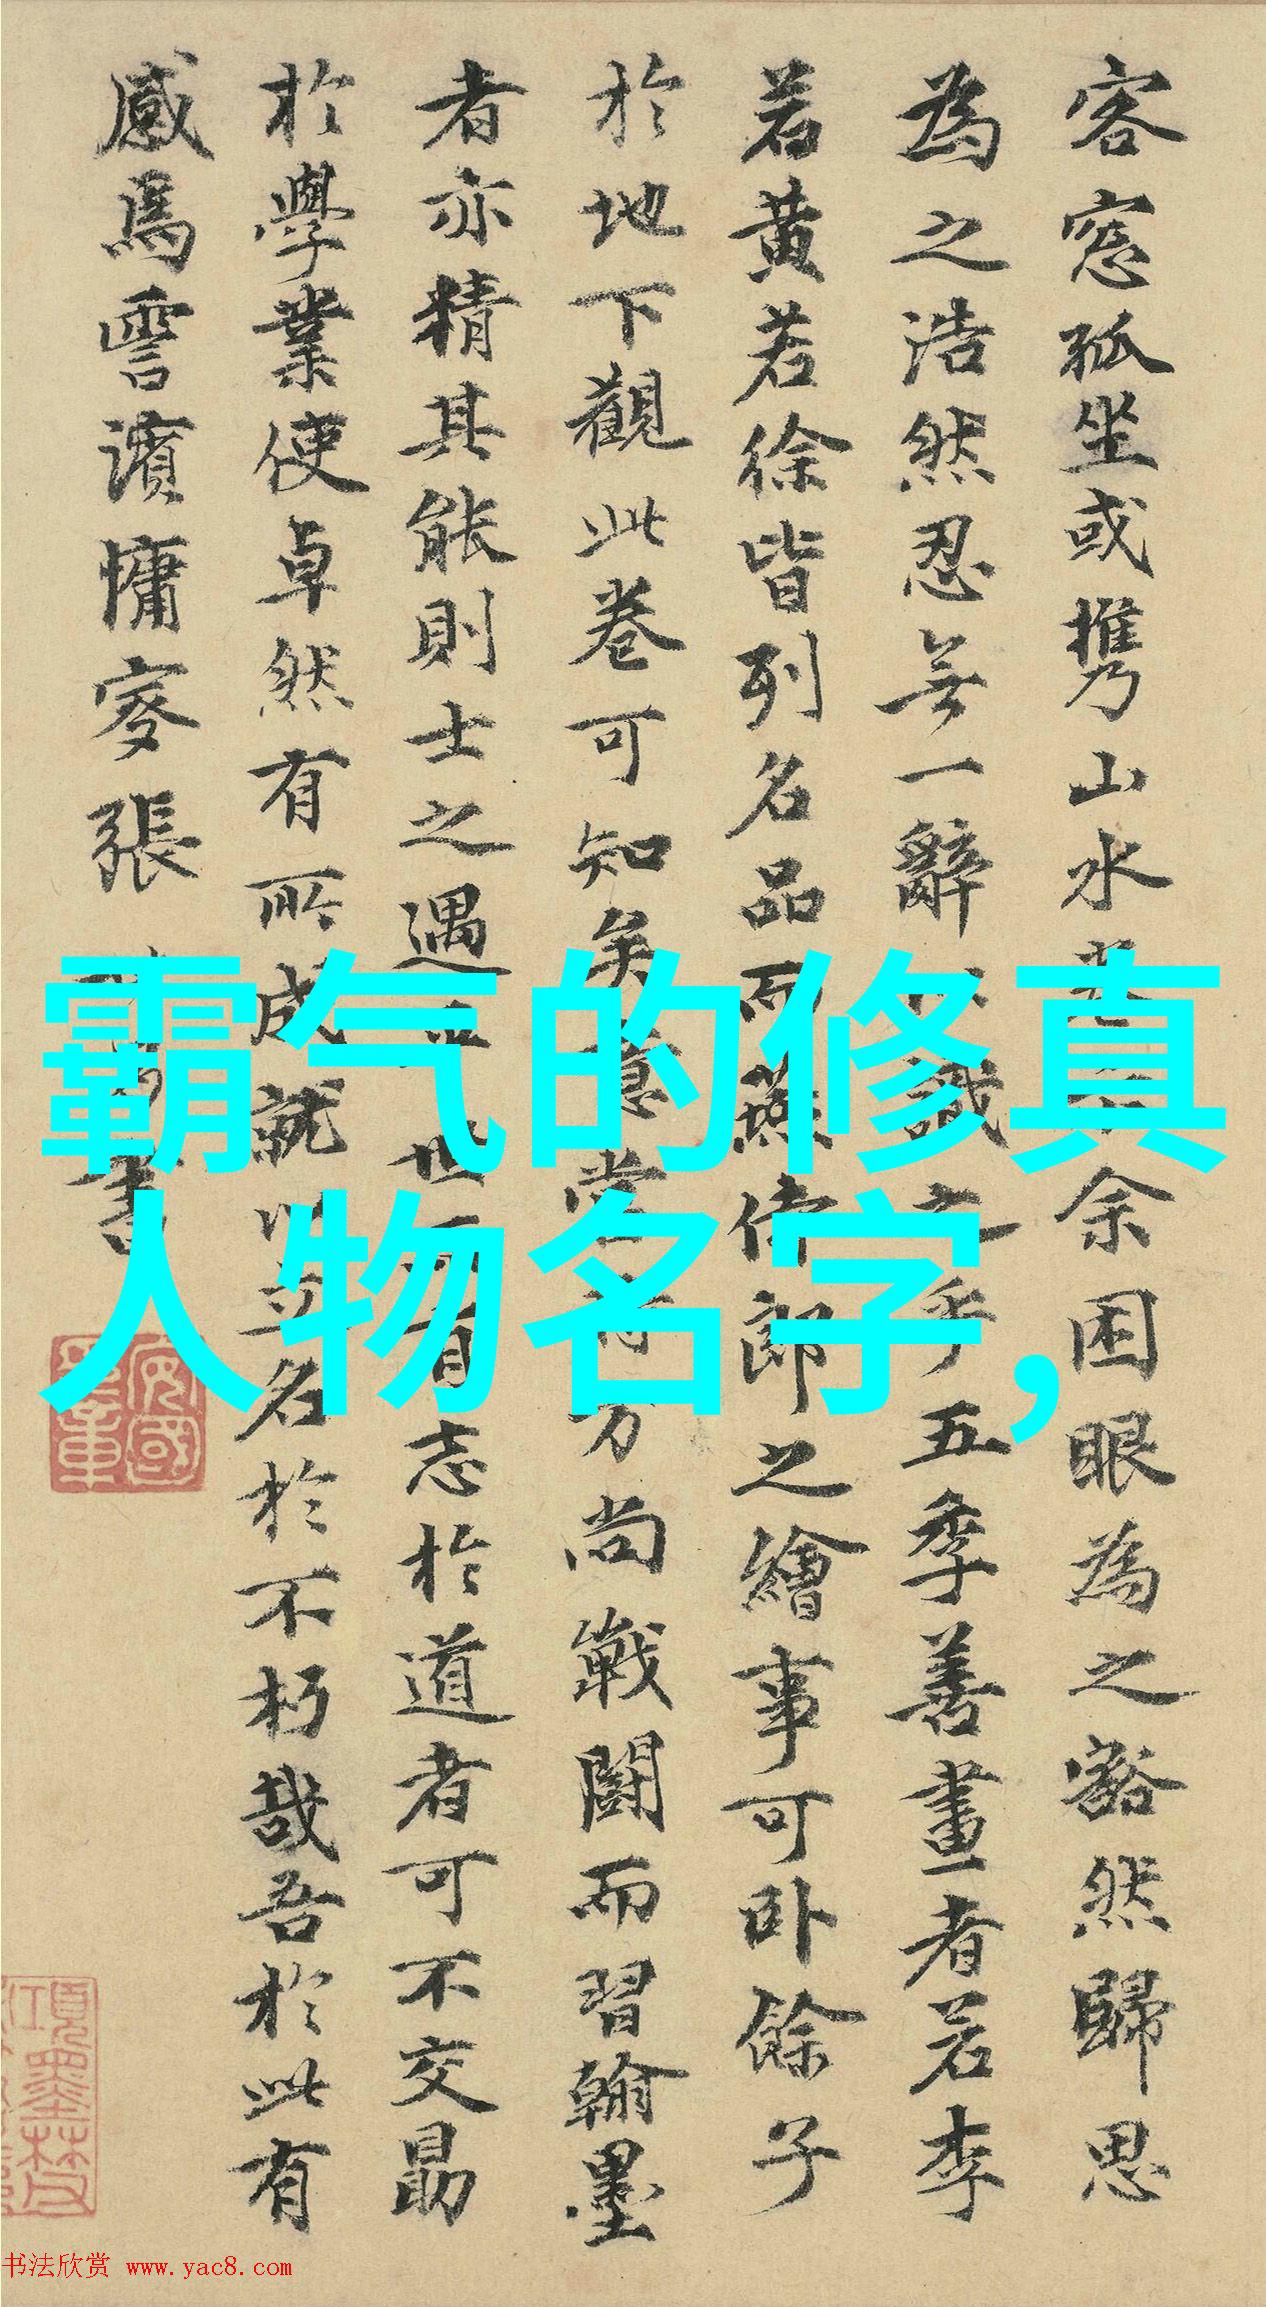 客窓孤坐或携山水
余困眼為之豁然歸思
為之浩然忍無一辭
識之乎五季善畫者若李
若黃若徐皆列名品而燕
郎之繪事可卧餘子
於地下觀此卷可知矣意
方尚戰闘而習翰墨
者亦精其能則士之遇
世
有志於道者可不交勗
於學業使卓然有所成就
名於不朽哉吾於此有
感焉雲濱慵叟張
書
霸气的修真
人物名字，
书法欣赏 www.yac8.com